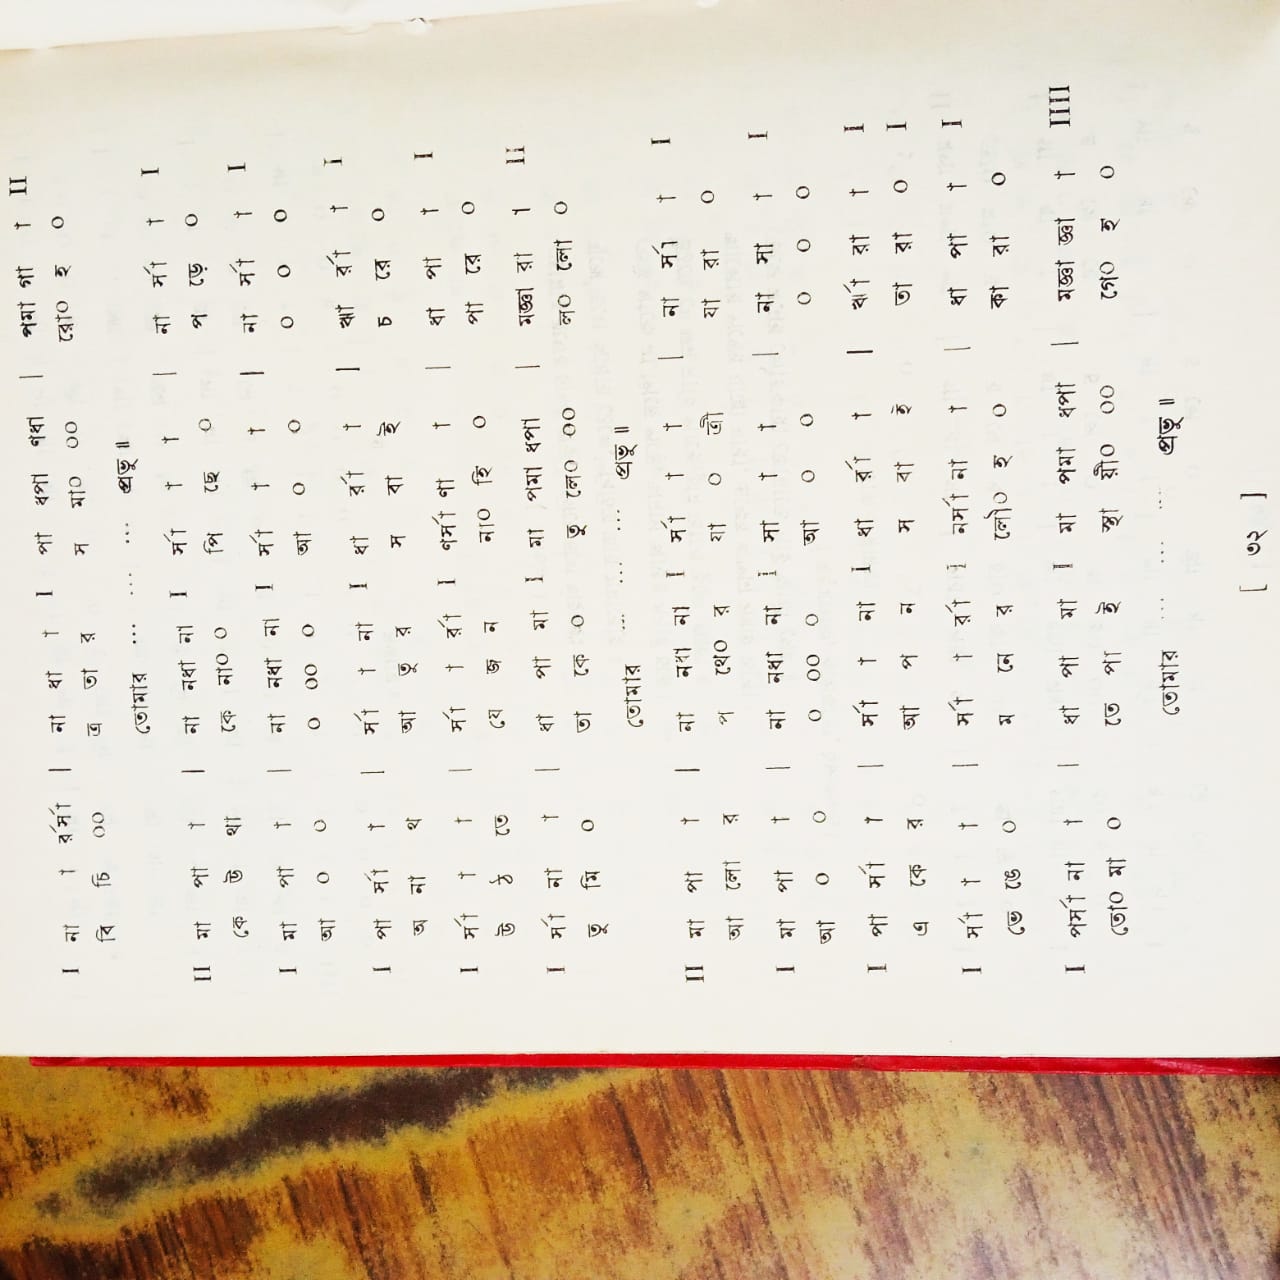 I না া র্রর্সা | না ধা া I পা ধপা ণধা | পমা গা া II
বি চি ০০ ত্র তা র স মা০ ০০ রো০ হ ০
তোমার ... ... ... প্রভু॥
II মা পা া | না নধা না I র্সা া া | না র্সা া I
কে উ থা কে না০ ০ পি ছে ০ প ড়ে ০
I মা পা া | না নধা না I র্সা া া | না র্সা া I
আ ০ ০ ০ ০০ ০ আ ০ ০ ০ ০ ০
I পা র্সা া | র্সা া না I ধা র্রা া | ঋা র্রা া I
অ না থ আ তু র স বা ই চ রে ০
I র্সা া া | র্সা া র্রা I ণর্সা ণা া | ধা পা া I
উ ঠ তে যে জ ন না০ হি ০ পা রে ০
I র্সা না া | ধা পা মা I মা পমা ধপা | মজ্ঞা রা া II
তু মি ০ তা কে ০ তু লে০ ০০ ল০ লো ০
তোমার ... ... ... প্রভু॥
II মা পা া | না নধা না I র্সা া া | না র্সা া I
আ লো র প থে০ র যা ০ ত্রী যা রা ০
I মা পা া | না নধা না I সা া া | না সা া I
আ ০ ০ ০ ০০ ০ আ ০ ০ ০ ০ ০
I পা র্সা া | র্সা া না I ধা র্রা া | র্ঋা রা া I
এ কে র আ প ন স বা ই তা রা ০ I
I র্সা া া | র্সা া র্রা I নর্সা না া | ধা পা া I
ভে ঙে ০ ম নে র লৌ০ হ ০ কা রা ০
I পর্সা না া | ধা পা মা I মা পমা ধপা | মজ্ঞা জ্ঞা া IIII
তো০ মা ০ তে পা ই স্থা য়ী০ ০০ গে০ হ ০
তোমার ... ... ... প্রভু॥
[ ৩২ ]